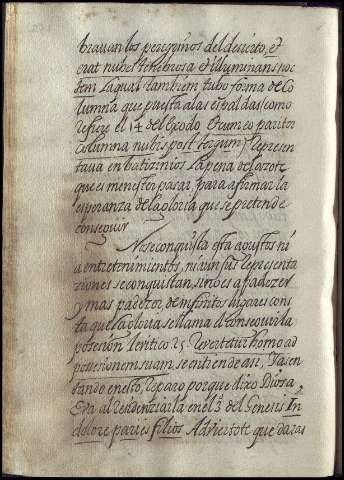 brauan los peregrinos del decierto, et
erat nubes tenebrosa et illuminans noc
tem la qual tambien tubo forma de Co
lumna que puesta a las espaldas como
refiere el 14 del Exodo et cum eo pariter
columna nubis post tergum, Represen
taua en baticinios la pena del azote
que es menester pasar, para afirmar la
esperanza de la gloria que se pretende
conseguir
No se conquista esta a gustos ni
a entretenimientos, ni aun sus Representa
ziones se conquistan, sino es a padezer
y mas padezer, de infinitos lugares cons
ta que la gloria se llama el conseguirla
posecion leuitico 25 Revertetur homo ad
possessionem suam, se entiende asi, Ia sen
tando en esto, Reparo porque dixo Dios a
Eva al residenciarla en el 3 del Genesis In
dolore paries filios Aduiertote que daras